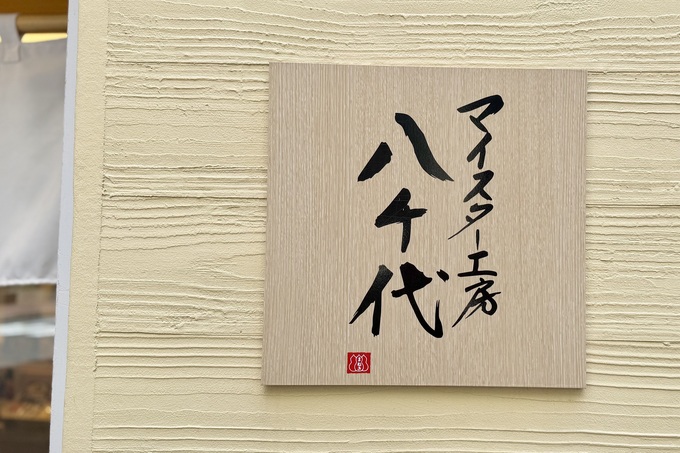 マイスター工房
八千代